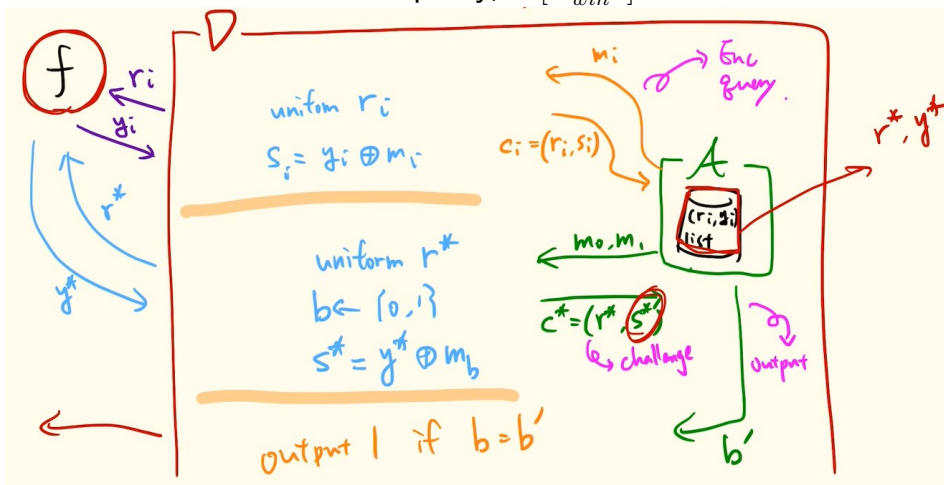 D
f
r_i
y_i
r*
y*
uniform r_i
s_i = y_i ⊕ m_i
uniform r*
b ← {0,1}
s* = y* ⊕ m_b
output 1 if b = b'
m_i
Enc
query.
c_i = (r_i, s_i)
A
(r_i, y_i)
list
r*, y*
m_0, m_1
c* = (r*, s*)
challenge
output
b'